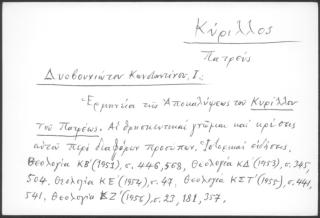 Κύριλλος
Πατρεύς
Δυοβουνιώτου Κωνσταντίνου, Ι:
Ἑρμηνεία τῆς Ἀποκαλύψεως τοῦ Κυρίλλου
τοῦ Πατρέως. Αἱ θρησκευτικαὶ γνῶμαι καὶ κρίσεις
αὐτοῦ περὶ διαφόρων προσώπων. Ἱστορικαὶ εἰδήσεις,
Θεολογία ΚΒ'(1951), σ. 446, 568, Θεολογία ΚΔ'(1953), σ. 345,
504. Θεολογία ΚΕ'(1954), σ. 47, Θεολογία ΚΣΤ'(1955), σ. 441,
541, Θεολογία ΚΖ'(1956), σ. 23, 181, 357,